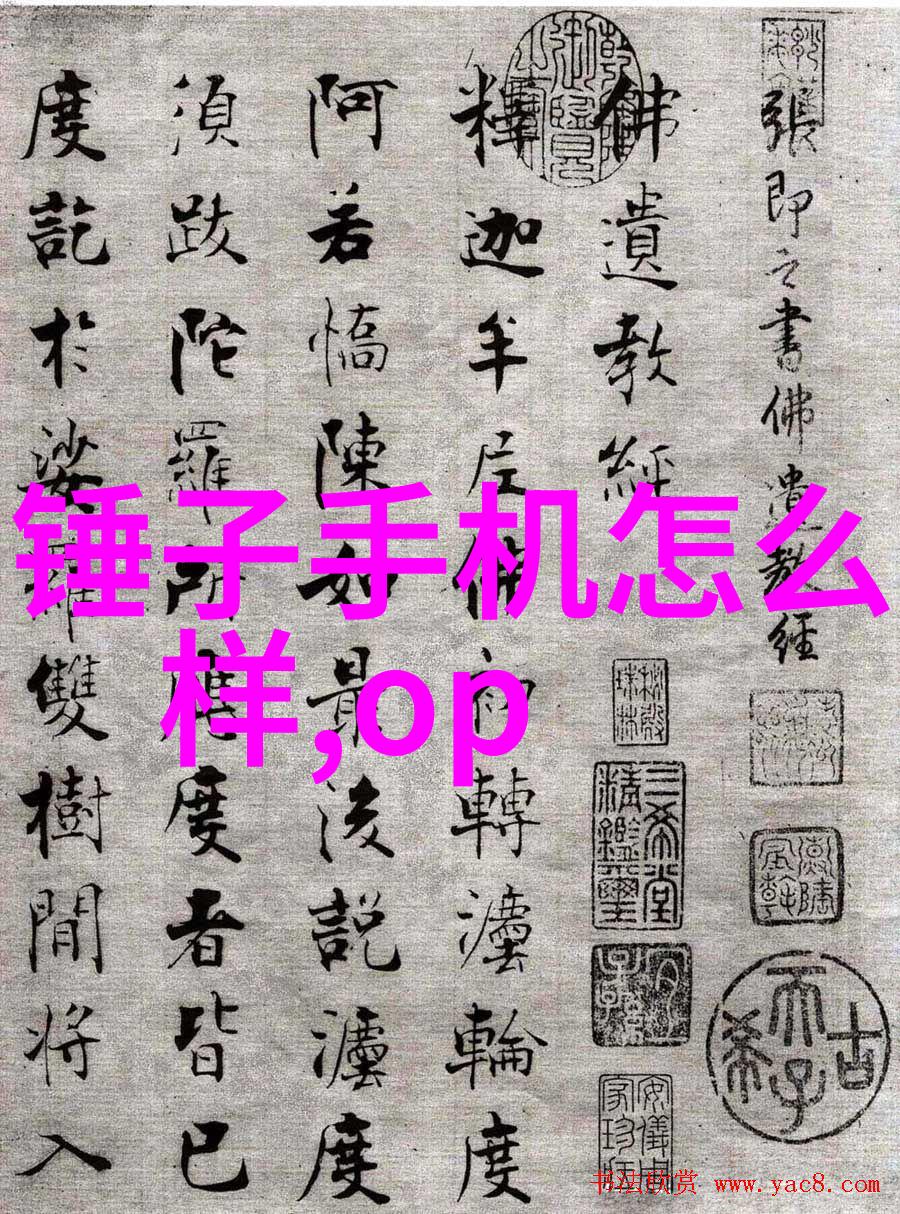 張即之書佛遺教經
佛遺教經
釋迦牟尼佛初轉法輪度
阿若憍陳如最後說法度
須跋陀羅所應度者皆已
度訖於娑羅雙樹間將入
锤子手机怎么
样,op
三希堂
精鑑璽
古
希
天
子
书法欣赏 www.yac8.com